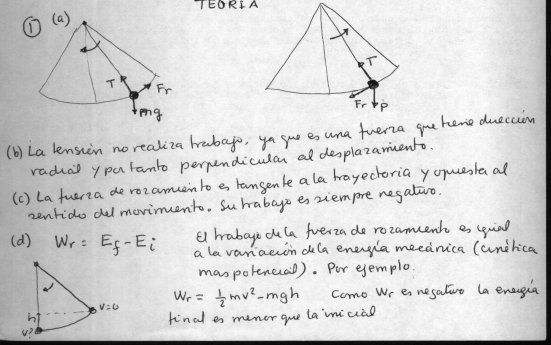 TEORÍA
① (a)
T Fr mg
T Fr P
(b) La tensión no realiza trabajo, ya que es una fuerza que tiene dirección
radial y por tanto perpendicular al desplazamiento.
(c) La fuerza de rozamiento es tangente a la trayectoria y opuesta al
sentido del movimiento. Su trabajo es siempre negativo.
(d) Wr = Ef - Ei El trabajo de la fuerza de rozamiento es igual
a la variación de la energía mecánica (cinética
mas potencial). Por ejemplo.
Wr = ½ mv² - mgh Como Wr es negativo la energía
final es menor que la inicial
h v=0
v?